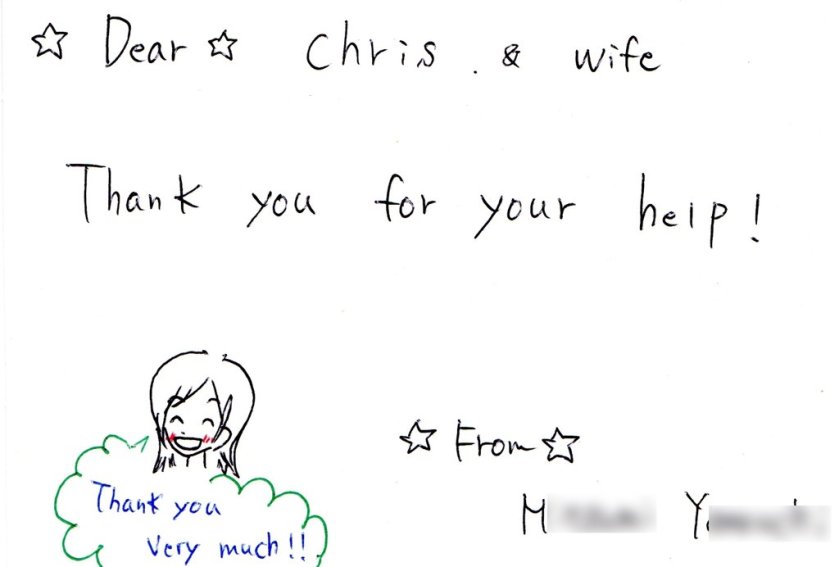 ☆ Dear ☆ Chris . & wife
Thank you for your help!
Thank you
Very much!!
☆ From ☆